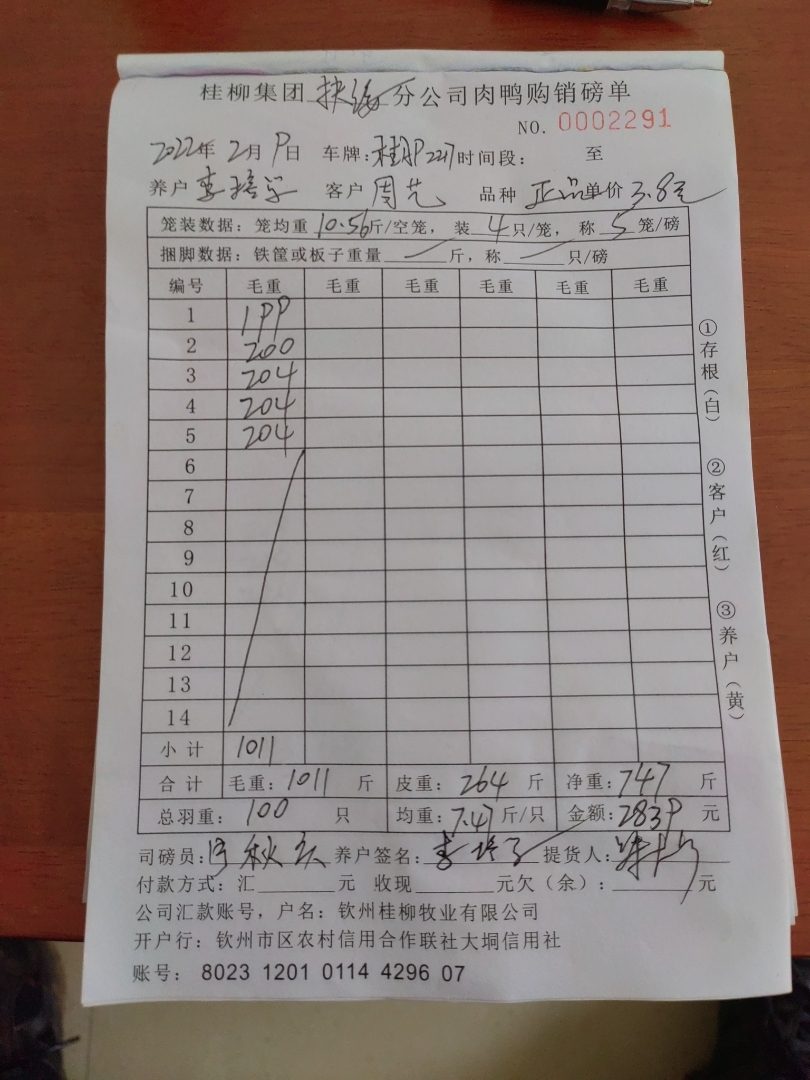 桂柳集团 分公司肉鸭购销磅单
NO. 0002291
2022年 2月 9日 车牌：桂 2217 时间段： 至
养户 李培学 客户 周 品种 正品 单价 3.8元
笼装数据：笼均重 10.56 斤/空笼，装 4 只/笼，称 5 笼/磅
捆脚数据：铁筐或板子重量 斤，称 只/磅
编号 毛重 毛重 毛重 毛重 毛重 毛重
1 199
2 200
3 204
4 204
5 204
6
7
8
9
10
11
12
13
14
小计 1011
合计 毛重：1011 斤 皮重：264 斤 净重：747 斤
总羽重：100 只 均重：7.47 斤/只 金额：2839 元
司磅员： 秋 养户签名：李培 提货人：
付款方式：汇 元 收现 元欠（余）： 元
公司汇款账号，户名：钦州桂柳牧业有限公司
开户行：钦州市区农村信用合作联社大垌信用社
账号：8023 1201 0114 4296 07
①存根（白）
②客户（红）
③养户（黄）